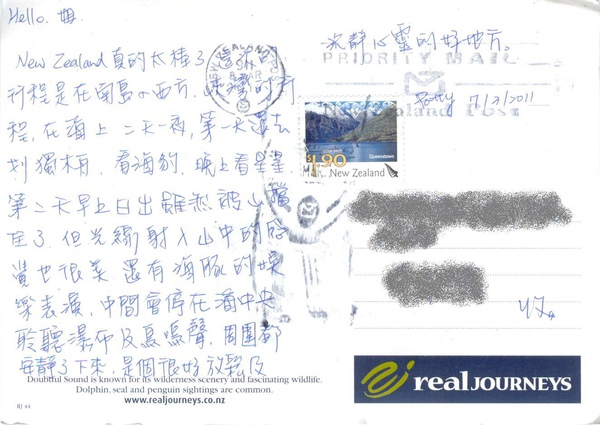 Hello. 姐
New Zealand 真的太棒了 這次的
行程是在南島の西方. 峽灣的行
程, 在海上 二天一夜, 第一天還去
划獨木舟, 看海豹, 晚上看星星
第二天早上日出雖然被山擋
住了, 但光線射入山中的感
覺也很美. 還有海豚的娛
樂表演, 中間會停在海中央
聆聽瀑布及鳥鳴聲, 周圍都
安靜了下來, 是個很好放鬆及
沉靜心靈的好地方。
7/2/2011
PRIORITY MAIL
New Zealand Post
$1.90
Queenstown
New Zealand
Doubtful Sound is known for its wilderness scenery and fascinating wildlife.
Dolphin, seal and penguin sightings are common.
www.realjourneys.co.nz
RJ 44
realJOURNEYS